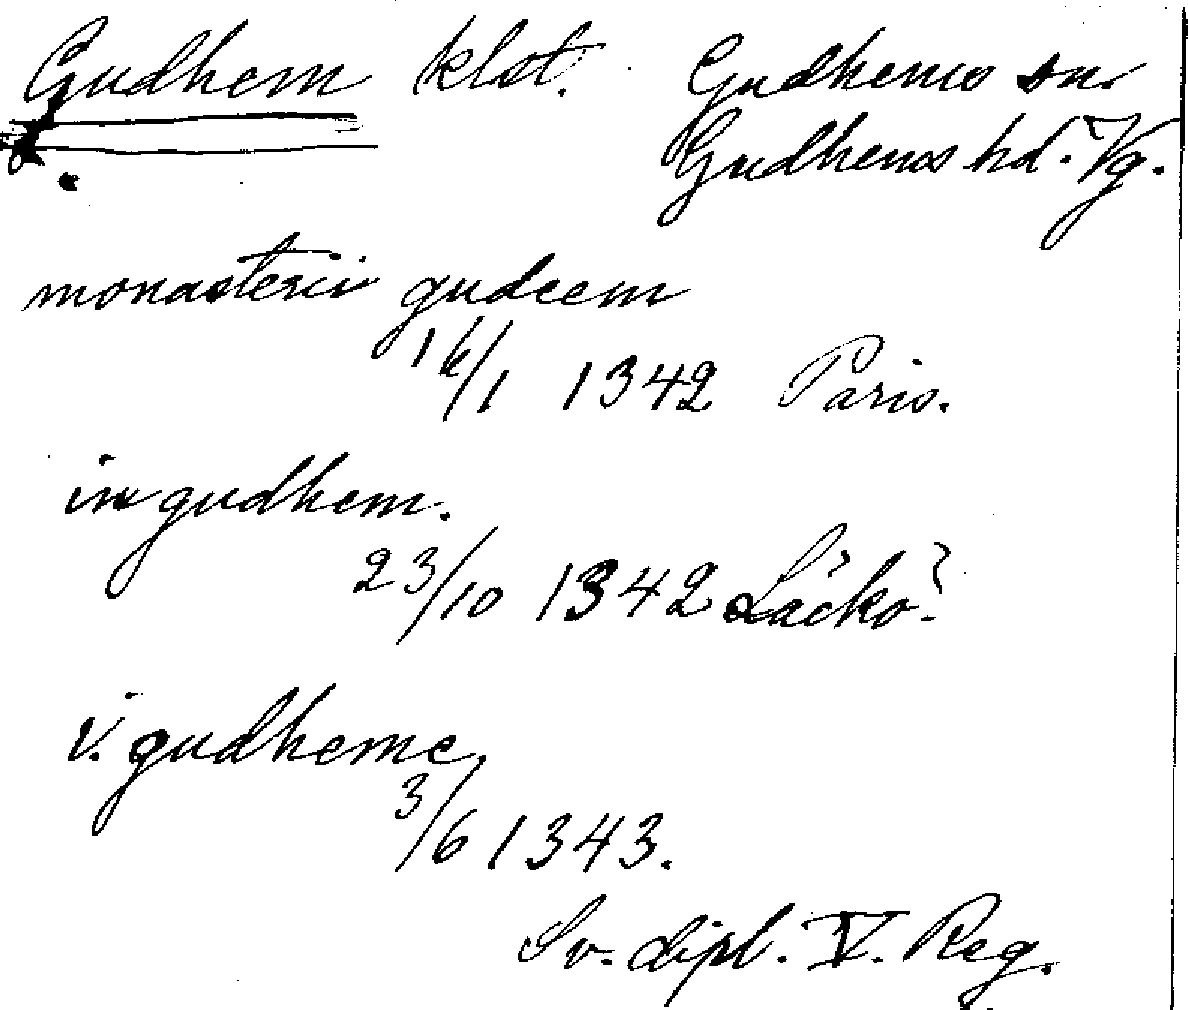 Gudhem klst. Gudhems sn.
Gudhems hd. Vg.
monasterii gudeem
16/1 1342 Paris.
in gudhem.
23/10 1342 Läckö?
i. gudheme,
3/6 1343.
Sv. dipl. V. Reg.